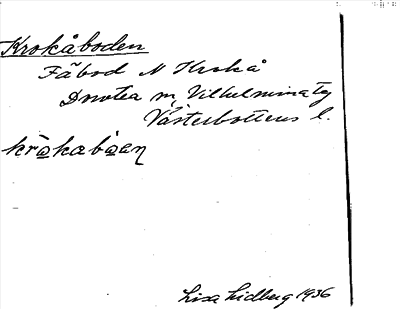 Krokåboden
Fäbod N Krokå
Dorotea m, Vilhelmina tg
Västerbottens l.
krò̲kabo̲en̥
Lisa Lidberg 1936